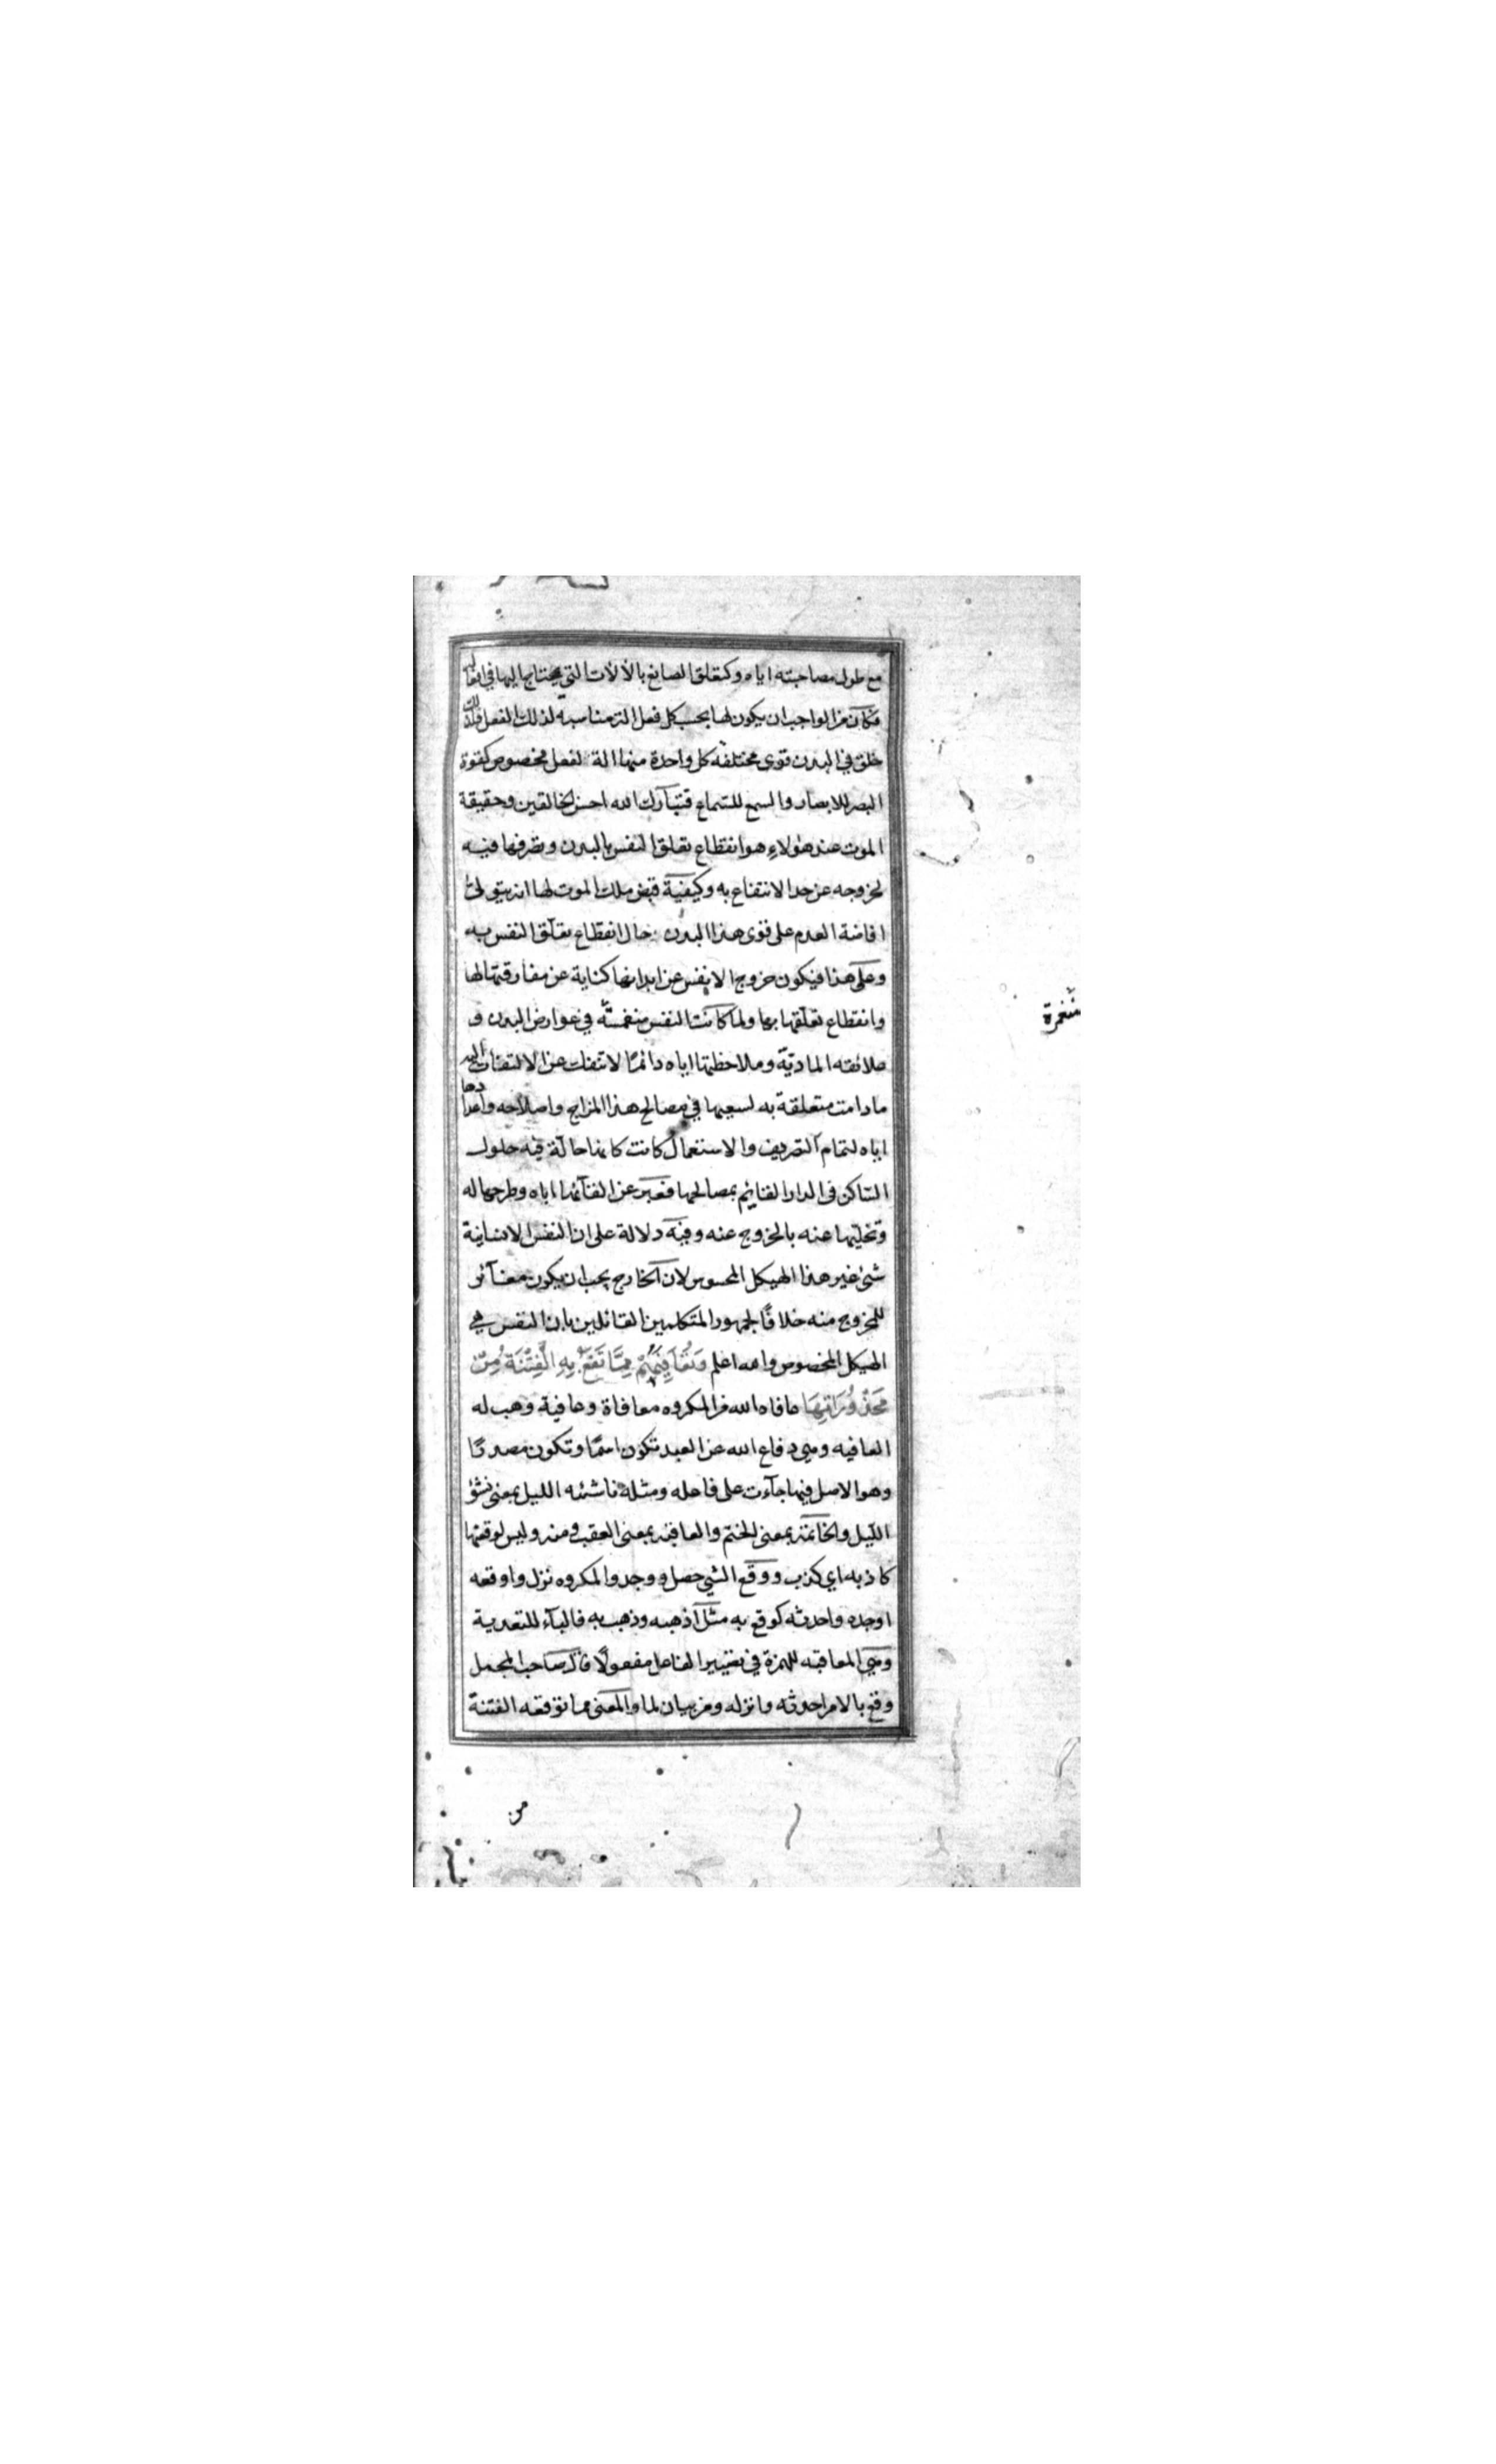 مع طول مصاحبته اياه وكتعلق الصانع بالآلات التي يحتاج اليها في افعاله
فكان من الواجب ان يكون لها بحسب كل فعل الة مناسبة لذلك الفعل فلذلك
خلق في البدن قوى مختلفة كل واحدة منها الة لفعل مخصوص كقوة
البصر للابصار والسمع للسماع فتبارك الله احسن الخالقين وحقيقة
الموت عند هؤلاء هو انقطاع تعلق النفس بالبدن وتصرفها فيه
لخروجه عن حد الانتفاع به وكيفية قبض ملك الموت لها انه يتولى
افاضة العدم على قوى هذا البدن حال انقطاع تعلق النفس به
وعلى هذا فيكون خروج الانفس عن ابدانها كناية عن مفارقتها لها
وانقطاع تعلقها بها ولما كانت النفس منغمسة في عوارض البدن و
علائقه المادية وملاحظتها اياه دائما لا تنفك عن الالتفات اليه
ما دامت متعلقة به لسعيها في مصالح هذا المزاج واصلاحه واعدادها
اياه لتمام التصريف والاستعمال كانت كانها حالة فيه حلول
الساكن في الدار القائم بمصالحها فعبر عن القائها اياه وطرحها له
وتخليها عنه بالخروج عنه وفيه دلالة على ان النفس الانسانية
شئ غير هذا الهيكل المحسوس لان الخارج يجب ان يكون مغايرا
للمخروج منه خلافا لجمهور المتكلمين القائلين بان النفس هي
الهيكل المخصوص والله اعلم وَتُعَافِيَهُمْ مِمَّا تَقَعُ بِهِ الْفِتْنَةُ مِنْ
مَحْذُورَاتِهَا عافاه الله من المكروه معافاة وعافية وهب له
العافيه وهي دفاع الله عن العبد تكون اسما وتكون مصدرا
وهو الاصل فيها جاءت على فاعله ومثله ناشئه الليل بمعنى نشؤ
الليل والخاتمة بمعنى الختم والعاقبة بمعنى العقب ومنه وليس لوقعتها
كاذبه اي كذب ووقع الشئ حصل ووجد والمكروه نزل واوقعه
اوجده واحدثه كوقع به مثل اذهبه وذهب به فالباء للتعدية
وهي المعاقبه للهمزة في تصيير الفاعل مفعولا قال صاحب المجمل
وقع بالامر احدثه وانزله ومن بيان لما والمعنى مما توقعه الفتنة
من